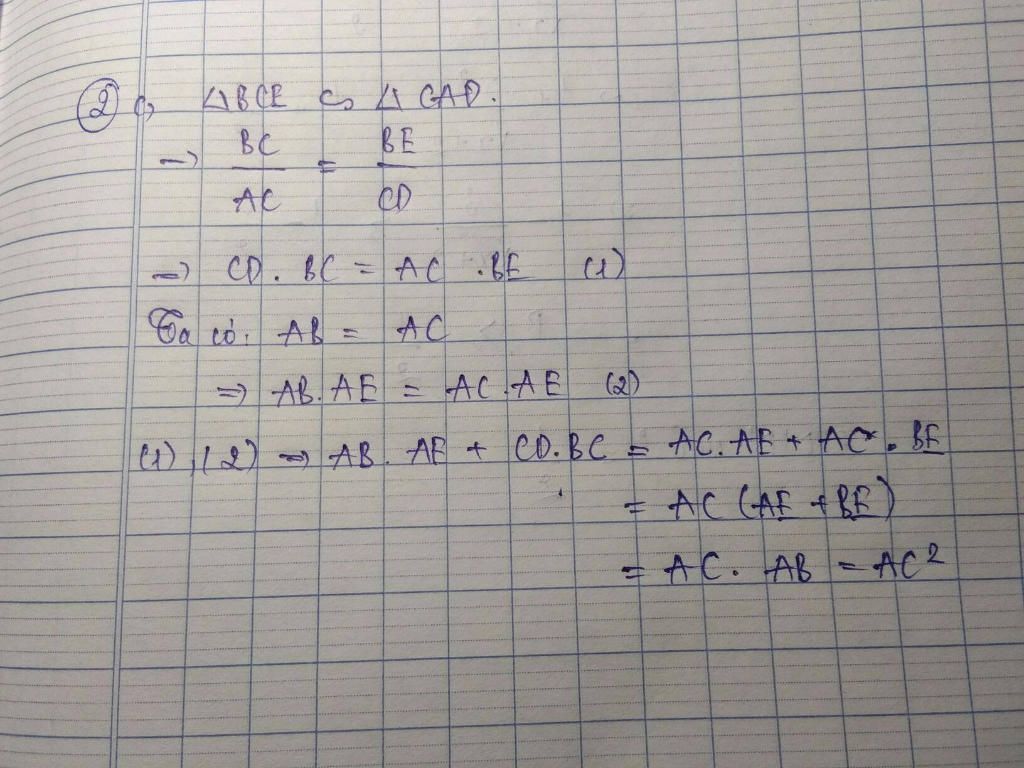 ② c, △BCE ∽ △CAD.
→ BC/AC = BE/CD
→ CD . BC = AC . BE (1)
Ta có: AB = AC
⇒ AB.AE = AC.AE (2)
(1), (2) ⇒ AB . AE + CD.BC = AC.AE + AC . BE
= AC (AE + BE)
= AC. AB = AC²